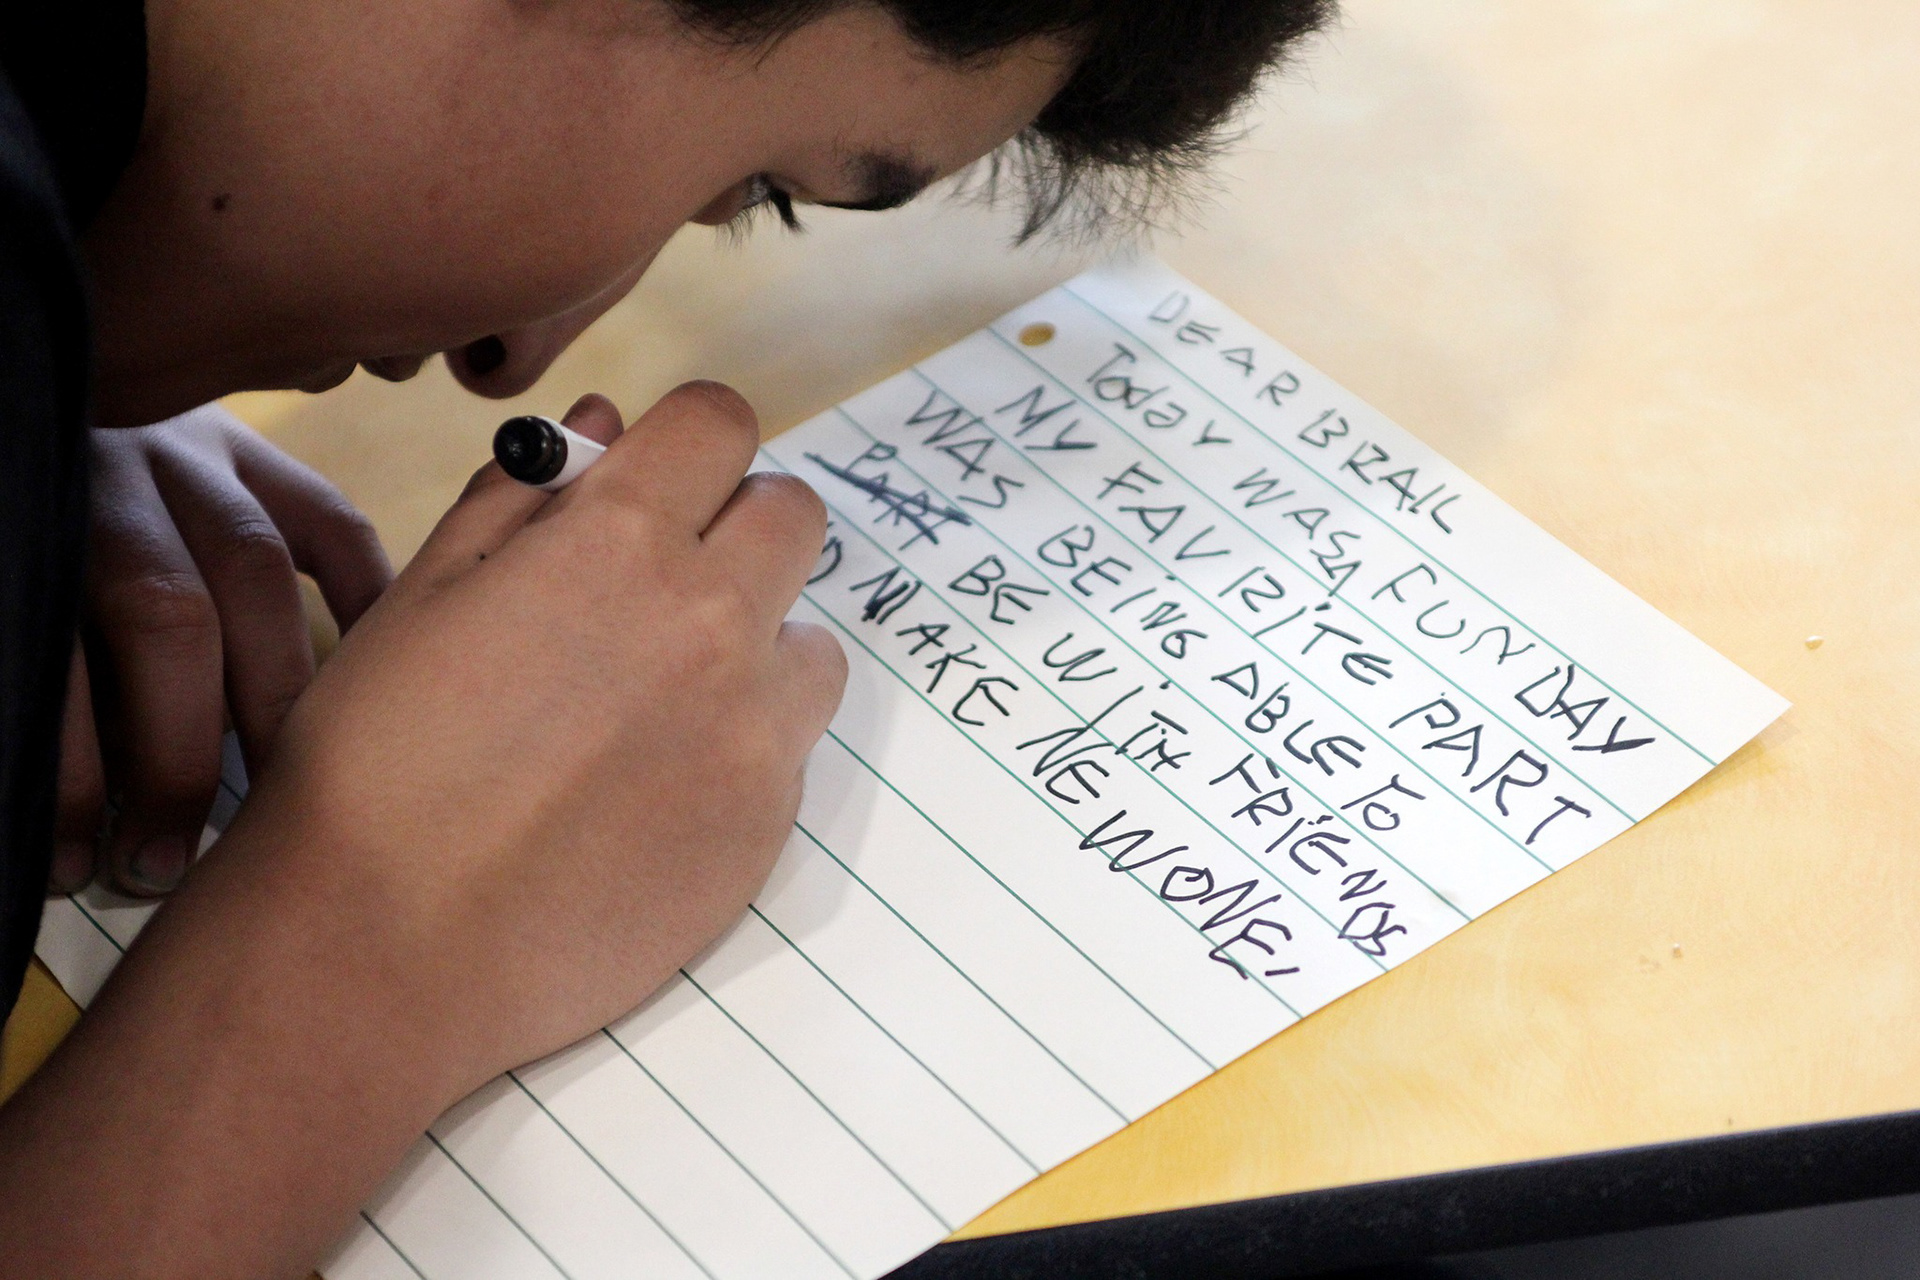 DEAR BRAIL
Today WAS A FUN DAY
MY FAVIRITE PART
WAS BEING ABLE TO
PART BE WITH FRIENDS
MAKE NE WONE!